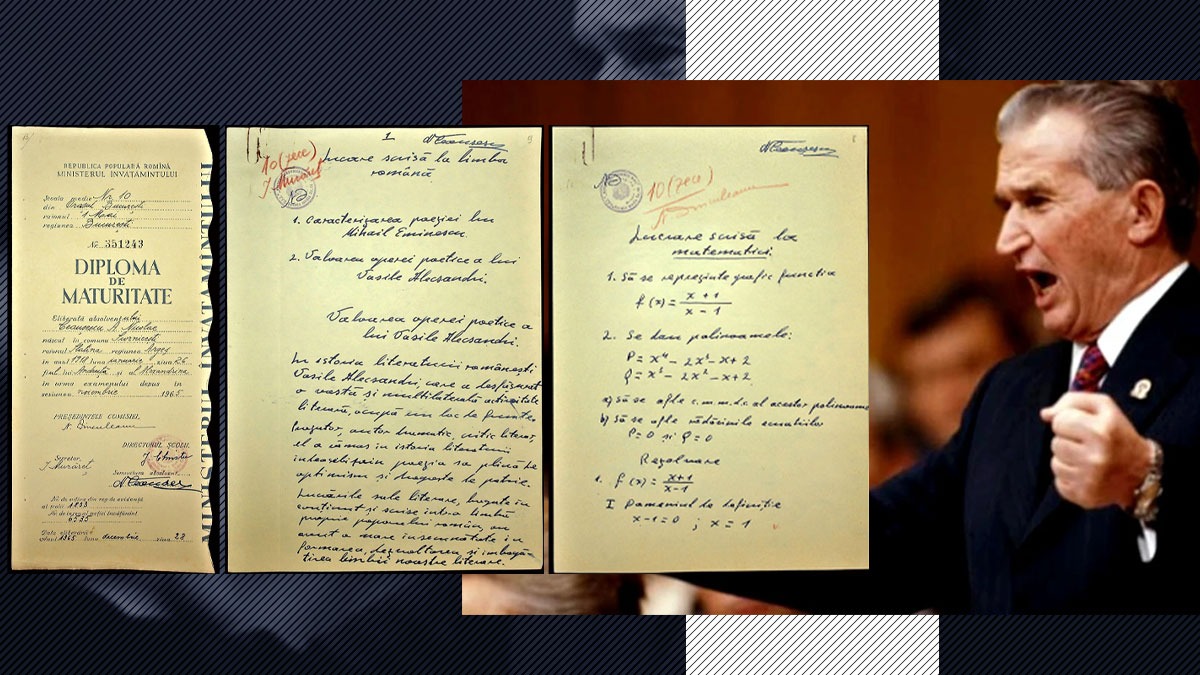 REPUBLICA POPULARĂ ROMÎNĂ
MINISTERUL INVATAMINTULUI
Școala medie Nr 10
din Orașul București
raionul 1 Mai
regiunea București
№ 351243
DIPLOMA
DE
MATURITATE
Eliberată absolventului
Ceaușescu A. Nicolae
născut în comuna
raionul Slatina regiunea Argeș
în anul 1918 luna ianuarie ziua 26
fiul lui Andruță și al Alexandrina
în urma examenului depus în
sesiunea noembrie 1965
PREȘEDINTELE COMISIEI,
DIRECTORUL ȘCOLII,
Secretar,
Semnătura absolvent.
Nr. de ordine din reg. de evidență
al
Data eliberării
Anul 1965 luna decembrie ziua 23
MINISTERUL INVATAMINTULUI
1
10 (zece)
Lucrare scrisă la limba
română
1. Caracterizarea poeziei lui
Mihail Eminescu.
2. Valoarea operei poetice a lui
Vasile Alecsandri.
Valoarea operei poetice a
lui Vasile Alecsandri.
In istoria literaturii românești
Vasile Alecsandri, care a desfășurat
o vastă și multilaterală activitate
literară, ocupă un loc de frunte.
autor dramatic, critic literar
el a rămas în istoria literaturii
prin poezia sa plină de
optimism și dragoste de patrie.
Lucrările sale literare, bogate în
conținut și scrise într-o limbă
proprie poporului român, au
avut o mare însemnătate în
formarea, dezvoltarea și îmbogă-
țirea limbii noastre literare.
10 (zece)
Lucrare scrisă la
matematici.
1. Să se reprezinte grafic functia
f(x) = x+1 / x-1
2. Se dau polinoamele:
P = x⁴ - 2x³ - x + 2
Q = x³ - 2x² - x + 2
a) Să se afle c.m.m.d.c al acestor polinoame
b) Să se afle rădăcinile ecuatiilor
P=0 și Q=0
Rezolvare
1. f(x) = x+1 / x-1
I Domeniul de definiție
x-1=0 ; x=1